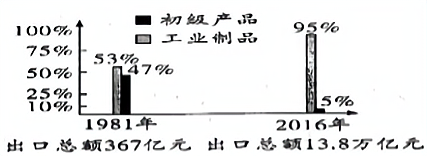 100%
75%
50%
25%
10%
初级产品
工业制品
53%
47%
95%
5%
1981年
2016年
出口总额367亿元 出口总额13.8万亿元